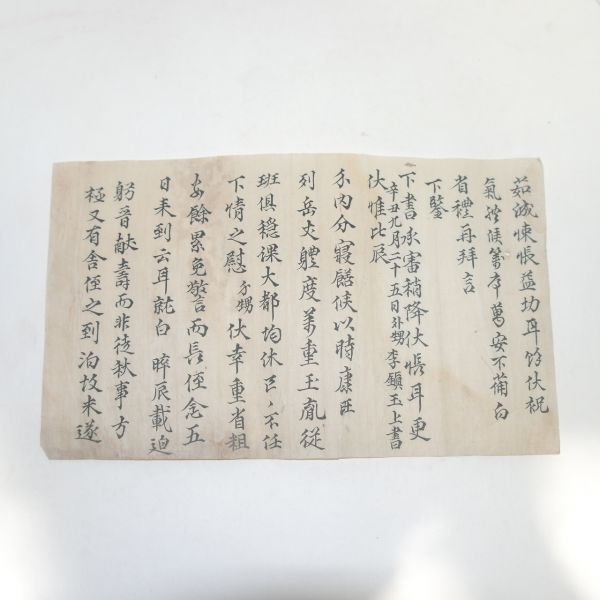 茹誠悚悵益切耳餘伏祝
氣體候萬卒萬安不備白
省禮再拜言
下鑒
下書承審稍降伏悵耳更
辛丑九月二十五日外甥李玉上書
伏惟比辰
內分寢饍候以時康旺
列岳丈軆度萬重玉胤從
班俱穩課大都均休區〃不任
下情之慰 外甥 伏幸重省粗
安餘累免警言而長侄念五
日来到云耳就白 晬辰載迫
躬晉獻壽而非徒秋事方
極又有舍侄之到泊故未遂